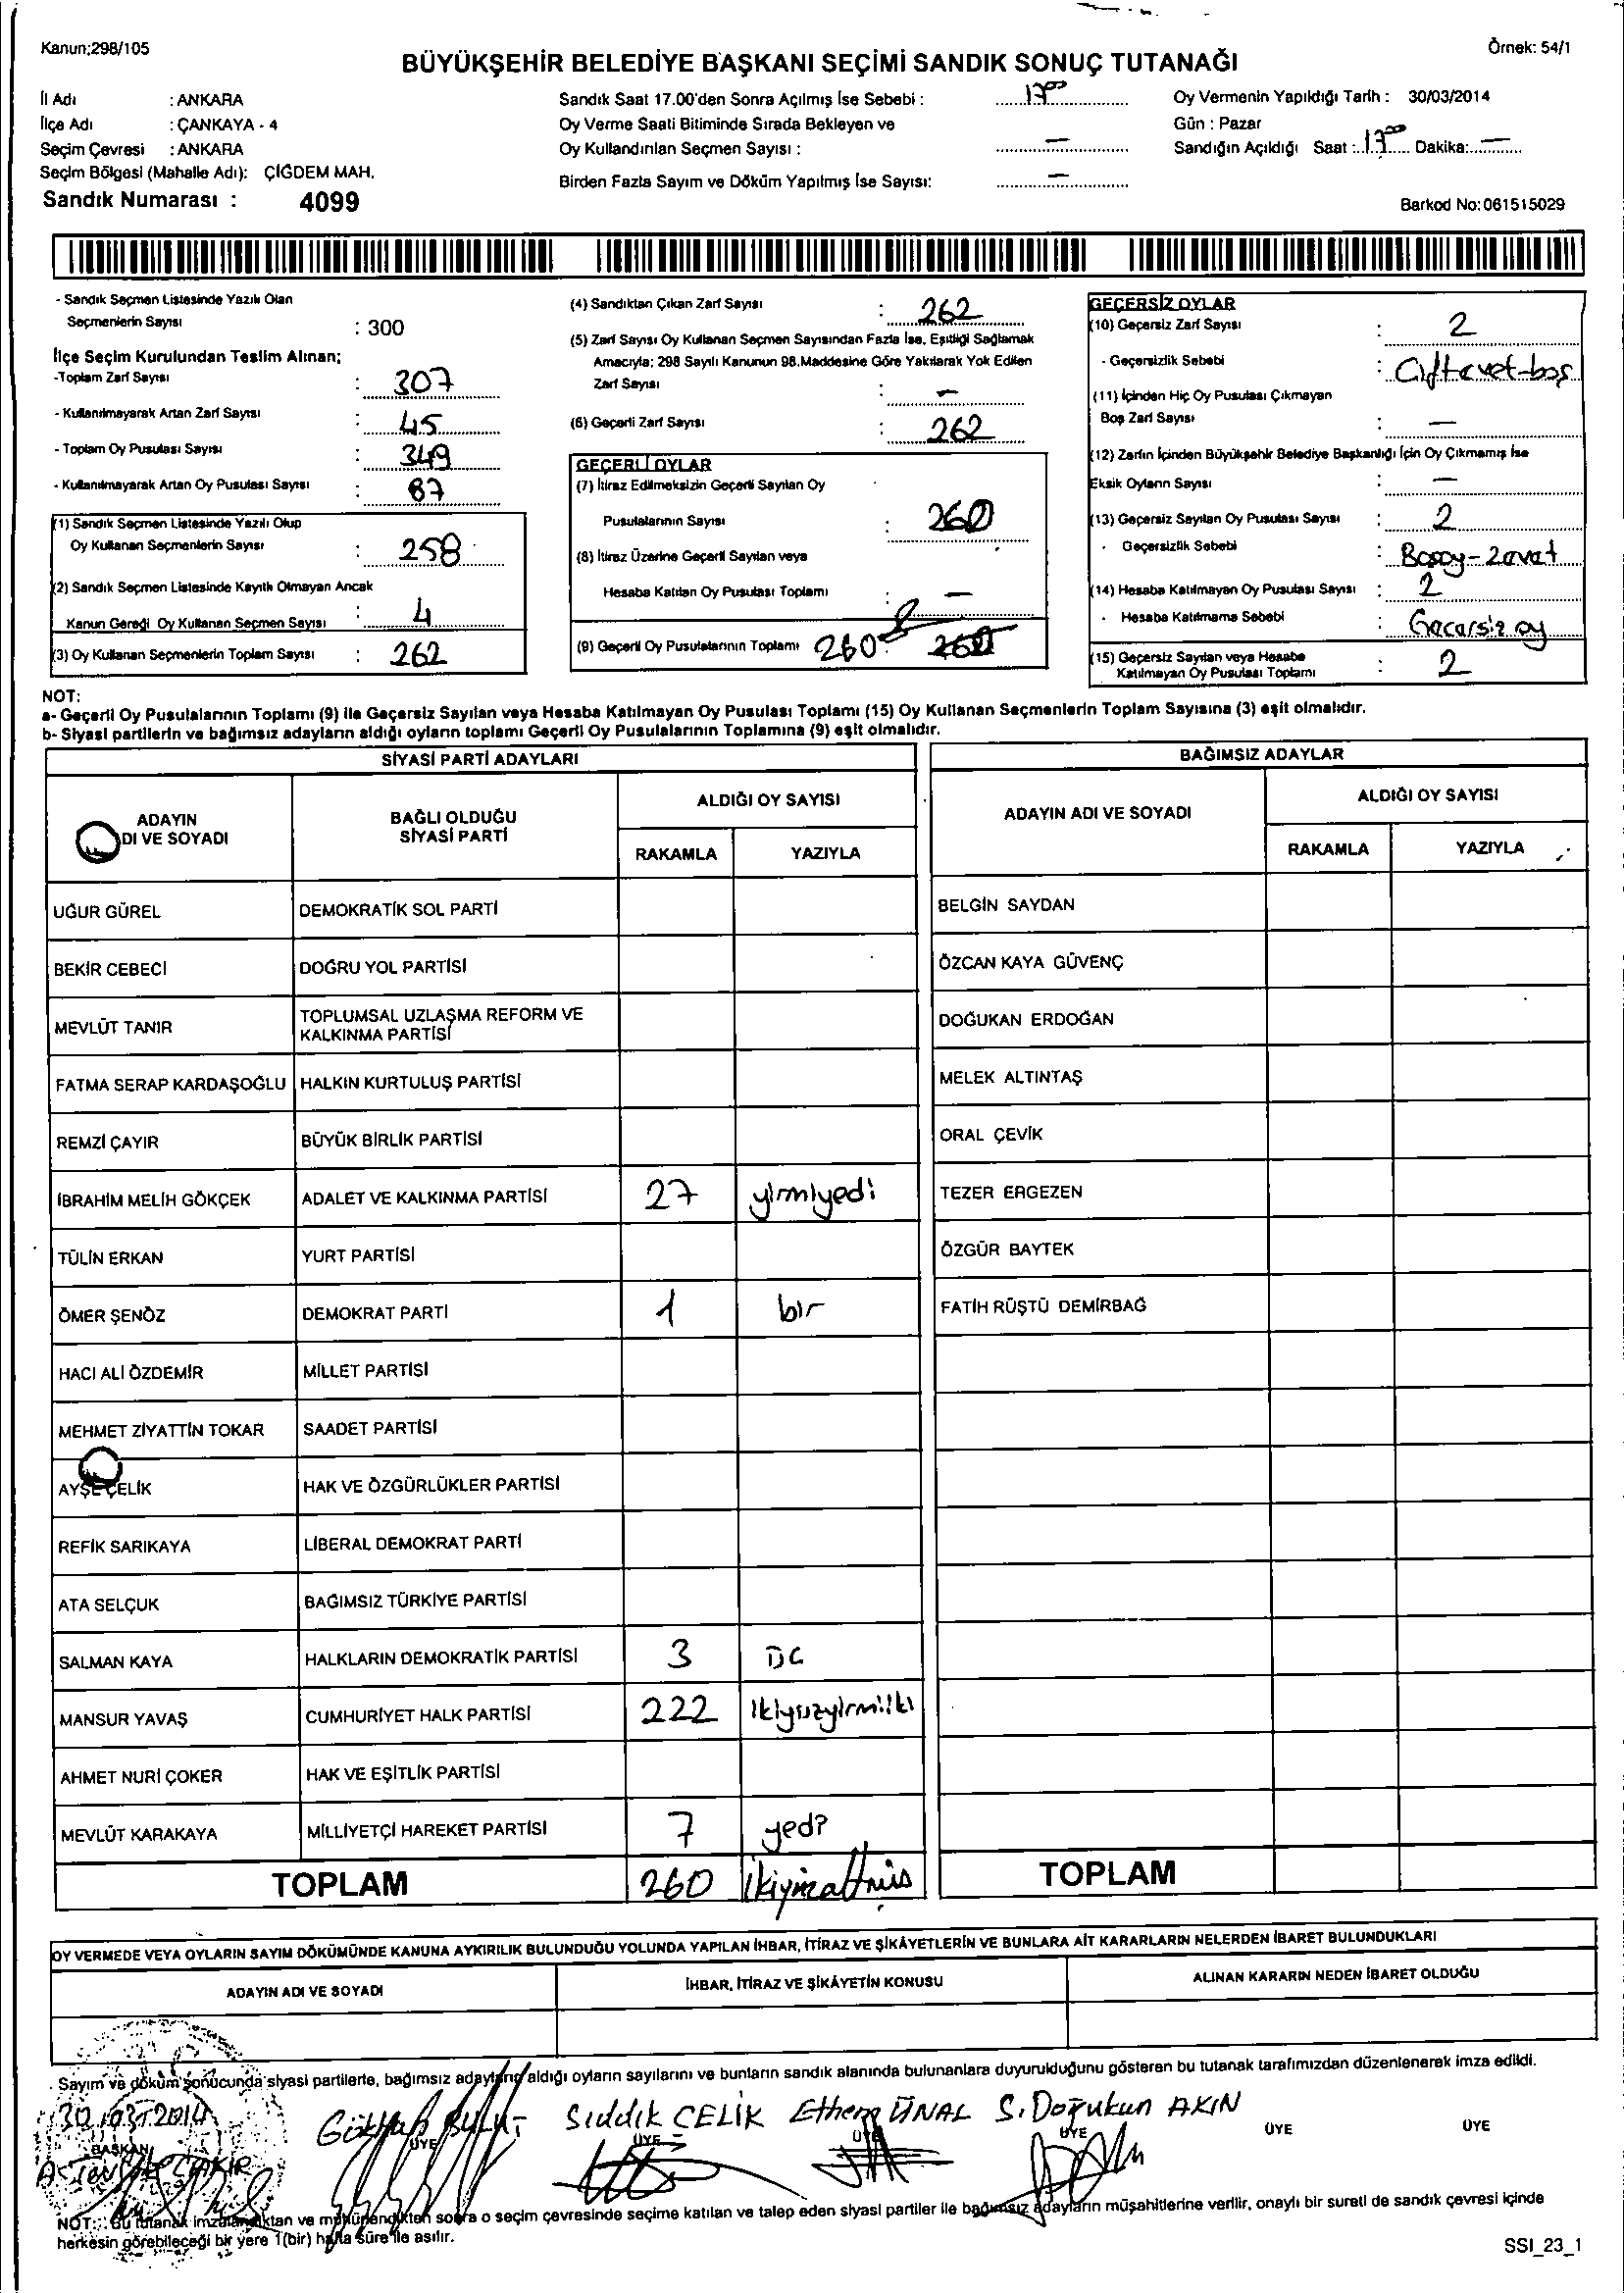 Kanun;298/105
Örnek: 54/1
BÜYÜKŞEHİR BELEDİYE BAŞKANI SEÇİMİ SANDIK SONUÇ TUTANAĞI
İl Adı : ANKARA
İlçe Adı : ÇANKAYA - 4
Seçim Çevresi : ANKARA
Seçim Bölgesi (Mahalle Adı): ÇİĞDEM MAH.
Sandık Numarası : 4099
Sandık Saat 17.00'den Sonra Açılmış İse Sebebi : 17⁰⁰
Oy Verme Saati Bitiminde Sırada Bekleyen ve
Oy Kullandırılan Seçmen Sayısı : —
Birden Fazla Sayım ve Döküm Yapılmış İse Sayısı: —
Oy Vermenin Yapıldığı Tarih : 30/03/2014
Gün : Pazar
Sandığın Açıldığı Saat : 17⁰⁰ Dakika: —
Barkod No:061515029
- Sandık Seçmen Listesinde Yazılı Olan
Seçmenlerin Sayısı : 300
İlçe Seçim Kurulundan Teslim Alınan;
-Toplam Zarf Sayısı : 307
- Kullanılmayarak Artan Zarf Sayısı : 45
- Toplam Oy Pusulası Sayısı : 349
- Kullanılmayarak Artan Oy Pusulası Sayısı : 87
(1) Sandık Seçmen Listesinde Yazılı Olup
Oy Kullanan Seçmenlerin Sayısı : 258
(2) Sandık Seçmen Listesinde Kayıtlı Olmayan Ancak
Kanun Gereği Oy Kullanan Seçmen Sayısı : 4
(3) Oy Kullanan Seçmenlerin Toplam Sayısı : 262
(4) Sandıktan Çıkan Zarf Sayısı : 262
(5) Zarf Sayısı Oy Kullanan Seçmen Sayısından Fazla İse, Eşitliği Sağlamak
Amacıyla; 298 Sayılı Kanunun 98.Maddesine Göre Yakılarak Yok Edilen
Zarf Sayısı : —
(6) Geçerli Zarf Sayısı : 262
GEÇERLİ OYLAR
(7) İtiraz Edilmeksizin Geçerli Sayılan Oy
Pusulalarının Sayısı : 260
(8) İtiraz Üzerine Geçerli Sayılan veya
Hesaba Katılan Oy Pusulası Toplamı : —
(9) Geçerli Oy Pusulalarının Toplamı 260 260
GEÇERSİZ OYLAR
(10) Geçersiz Zarf Sayısı : 2
- Geçersizlik Sebebi : Çiftevet-boş
(11) İçinden Hiç Oy Pusulası Çıkmayan
Boş Zarf Sayısı : —
(12) Zarfın İçinden Büyükşehir Belediye Başkanlığı İçin Oy Çıkmamış İse
Eksik Oyların Sayısı : —
(13) Geçersiz Sayılan Oy Pusulası Sayısı : 2
- Geçersizlik Sebebi : Boşoy-2evet
(14) Hesaba Katılmayan Oy Pusulası Sayısı : 2
- Hesaba Katılmama Sebebi : Geçersiz oy
(15) Geçersiz Sayılan veya Hesaba
Katılmayan Oy Pusulası Toplamı : 2
NOT:
a- Geçerli Oy Pusulalarının Toplamı (9) ile Geçersiz Sayılan veya Hesaba Katılmayan Oy Pusulası Toplamı (15) Oy Kullanan Seçmenlerin Toplam Sayısına (3) eşit olmalıdır.
b- Siyasi partilerin ve bağımsız adayların aldığı oyların toplamı Geçerli Oy Pusulalarının Toplamına (9) eşit olmalıdır.
SİYASİ PARTİ ADAYLARI
ADAYIN
DI VE SOYADI
BAĞLI OLDUĞU
SİYASİ PARTİ
ALDIĞI OY SAYISI
RAKAMLA YAZIYLA
UĞUR GÜREL DEMOKRATİK SOL PARTİ
BEKİR CEBECİ DOĞRU YOL PARTİSİ
MEVLÜT TANIR TOPLUMSAL UZLAŞMA REFORM VE
KALKINMA PARTİSİ
FATMA SERAP KARDAŞOĞLU HALKIN KURTULUŞ PARTİSİ
REMZİ ÇAYIR BÜYÜK BİRLİK PARTİSİ
İBRAHİM MELİH GÖKÇEK ADALET VE KALKINMA PARTİSİ 27 yirmiyedi
TÜLİN ERKAN YURT PARTİSİ
ÖMER ŞENÖZ DEMOKRAT PARTİ 1 bir
HACI ALİ ÖZDEMİR MİLLET PARTİSİ
MEHMET ZİYATTİN TOKAR SAADET PARTİSİ
AYŞE ÇELİK HAK VE ÖZGÜRLÜKLER PARTİSİ
REFİK SARIKAYA LİBERAL DEMOKRAT PARTİ
ATA SELÇUK BAĞIMSIZ TÜRKİYE PARTİSİ
SALMAN KAYA HALKLARIN DEMOKRATİK PARTİSİ 3 üç
MANSUR YAVAŞ CUMHURİYET HALK PARTİSİ 222 ikiyüzyirmiiki
AHMET NURİ ÇOKER HAK VE EŞİTLİK PARTİSİ
MEVLÜT KARAKAYA MİLLİYETÇİ HAREKET PARTİSİ 7 yedi
TOPLAM 260 ikiyüzaltmış
BAĞIMSIZ ADAYLAR
ADAYIN ADI VE SOYADI
ALDIĞI OY SAYISI
RAKAMLA YAZIYLA
BELGİN SAYDAN
ÖZCAN KAYA GÜVENÇ
DOĞUKAN ERDOĞAN
MELEK ALTINTAŞ
ORAL ÇEVİK
TEZER ERGEZEN
ÖZGÜR BAYTEK
FATİH RÜŞTÜ DEMİRBAĞ
TOPLAM
OY VERMEDE VEYA OYLARIN SAYIM DÖKÜMÜNDE KANUNA AYKIRILIK BULUNDUĞU YOLUNDA YAPILAN İHBAR, İTİRAZ VE ŞİKÂYETLERİN VE BUNLARA AİT KARARLARIN NELERDEN İBARET BULUNDUKLARI
ADAYIN ADI VE SOYADI İHBAR, İTİRAZ VE ŞİKÂYETİN KONUSU ALINAN KARARIN NEDEN İBARET OLDUĞU
Sayım ve döküm sonucunda siyasi partilerle, bağımsız adayların aldığı oyların sayılarını ve bunların sandık alanında bulunanlara duyurulduğunu gösteren bu tutanak tarafımızdan düzenlenerek imza edildi.
30/03/2014
Gökhan BULUT Sıddık ÇELİK Ethem ÜNAL S.Doğukan AKIN
BAŞKAN ÜYE ÜYE ÜYE ÜYE ÜYE ÜYE
NOT: Bu tutanak imzalandıktan ve mühürlendikten sonra o seçim çevresinde seçime katılan ve talep eden siyasi partiler ile bağımsız adayların müşahitlerine verilir, onaylı bir sureti de sandık çevresi içinde
herkesin görebileceği bir yere 1(bir) hafta süre ile asılır.
SSI_23_1